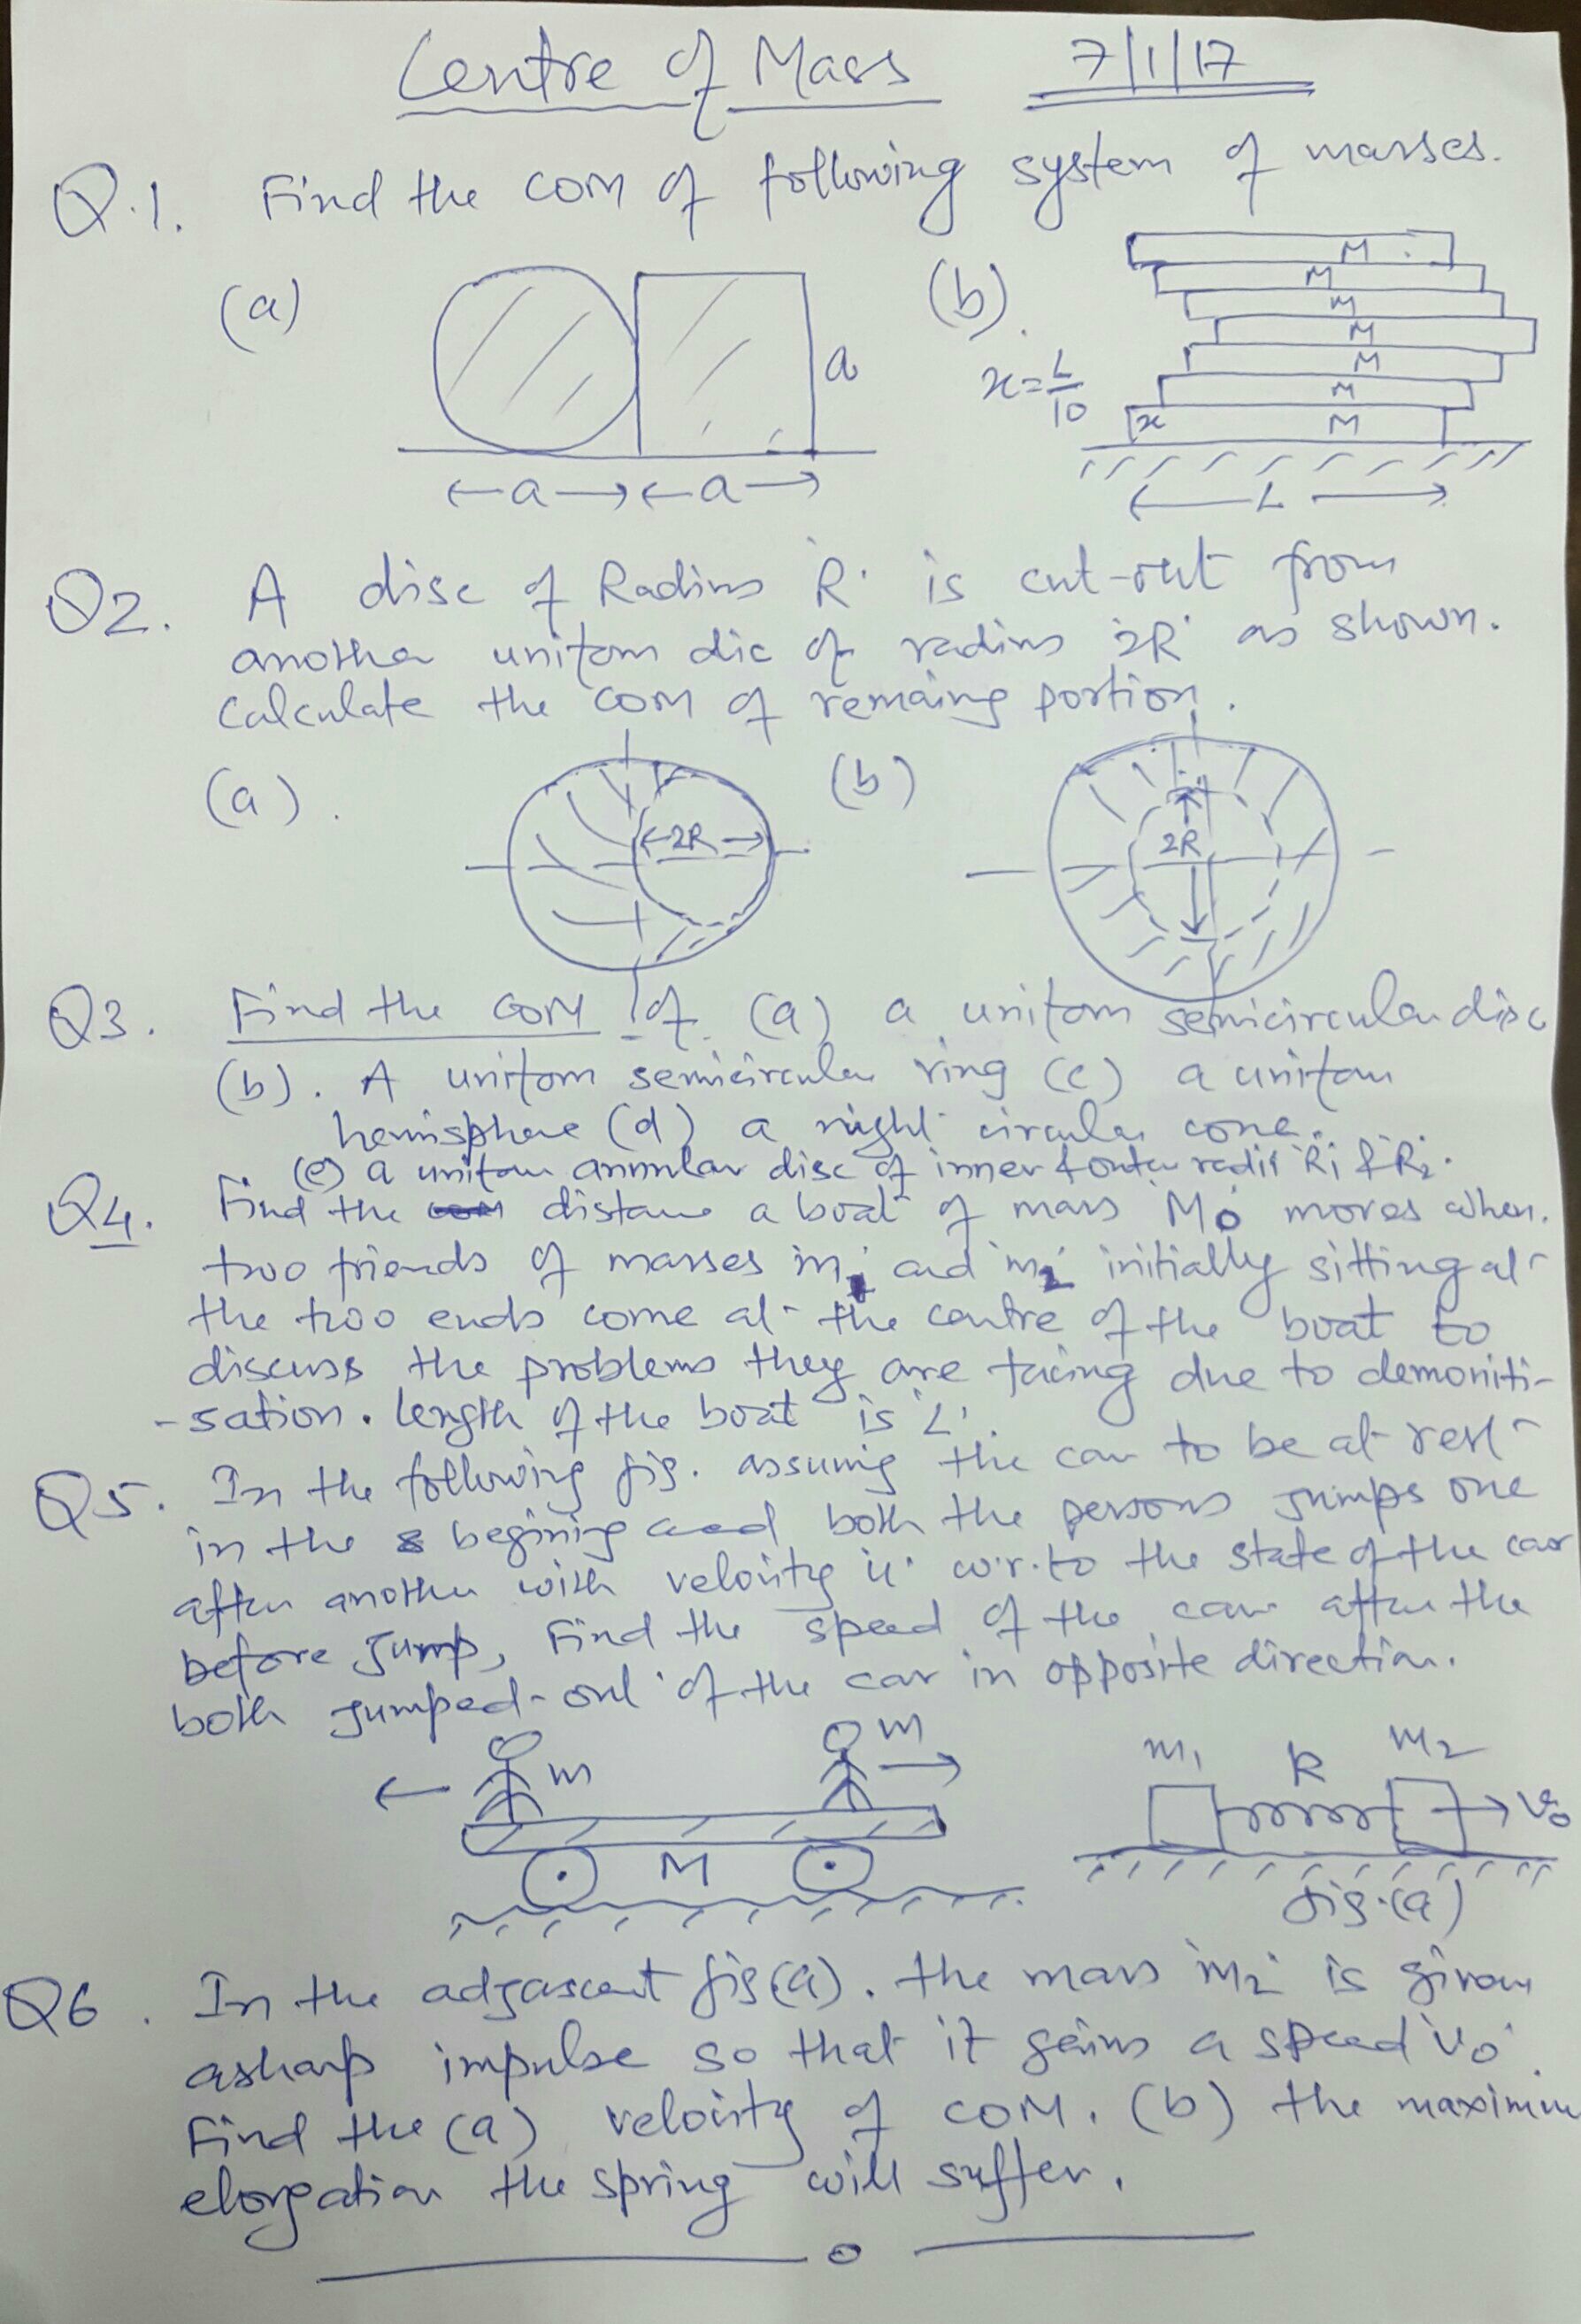 Centre of Mass 7/1/17
Q.1. Find the COM of following system of masses.
(a) a
a a
(b). x = L/10
M
M
M
M
M
M
x M
L
Q2. A disc of Radius 'R' is cut-out from
another uniform dic of radius '2R' as shown.
Calculate the COM of remaing portion.
(a). 2R (b) 2R
Q3. Find the COM of (a) a uniform semicircular disc
(b). A uniform semicircular ring (c) a uniform
hemisphere (d) a right circular cone.
(e) a uniform annular disc of inner & outer radii 'R1 & R2'.
Q4. Find the distance a boat of mass 'M0' moves when
two friends of masses 'm1' and 'm2' initially sitting at
the two ends come at the centre of the boat to
discuss the problems they are facing due to demoniti-
-sation. length of the boat is 'L'.
Q5. In the following fig. assuming the car to be at rest
in the begining and both the persons jumps one
after another with velocity 'u' w.r.to the state of the car
before jump, Find the speed of the car after the
both jumped-out of the car in opposite direction.
m m
M
m1 k m2 v0
fig.(a)
Q6. In the adjascent fig(a). the mass 'm2' is given
asharp impulse so that it gains a speed 'v0'.
Find the (a) velocity of COM. (b) the maximum
elongation the spring will suffer.